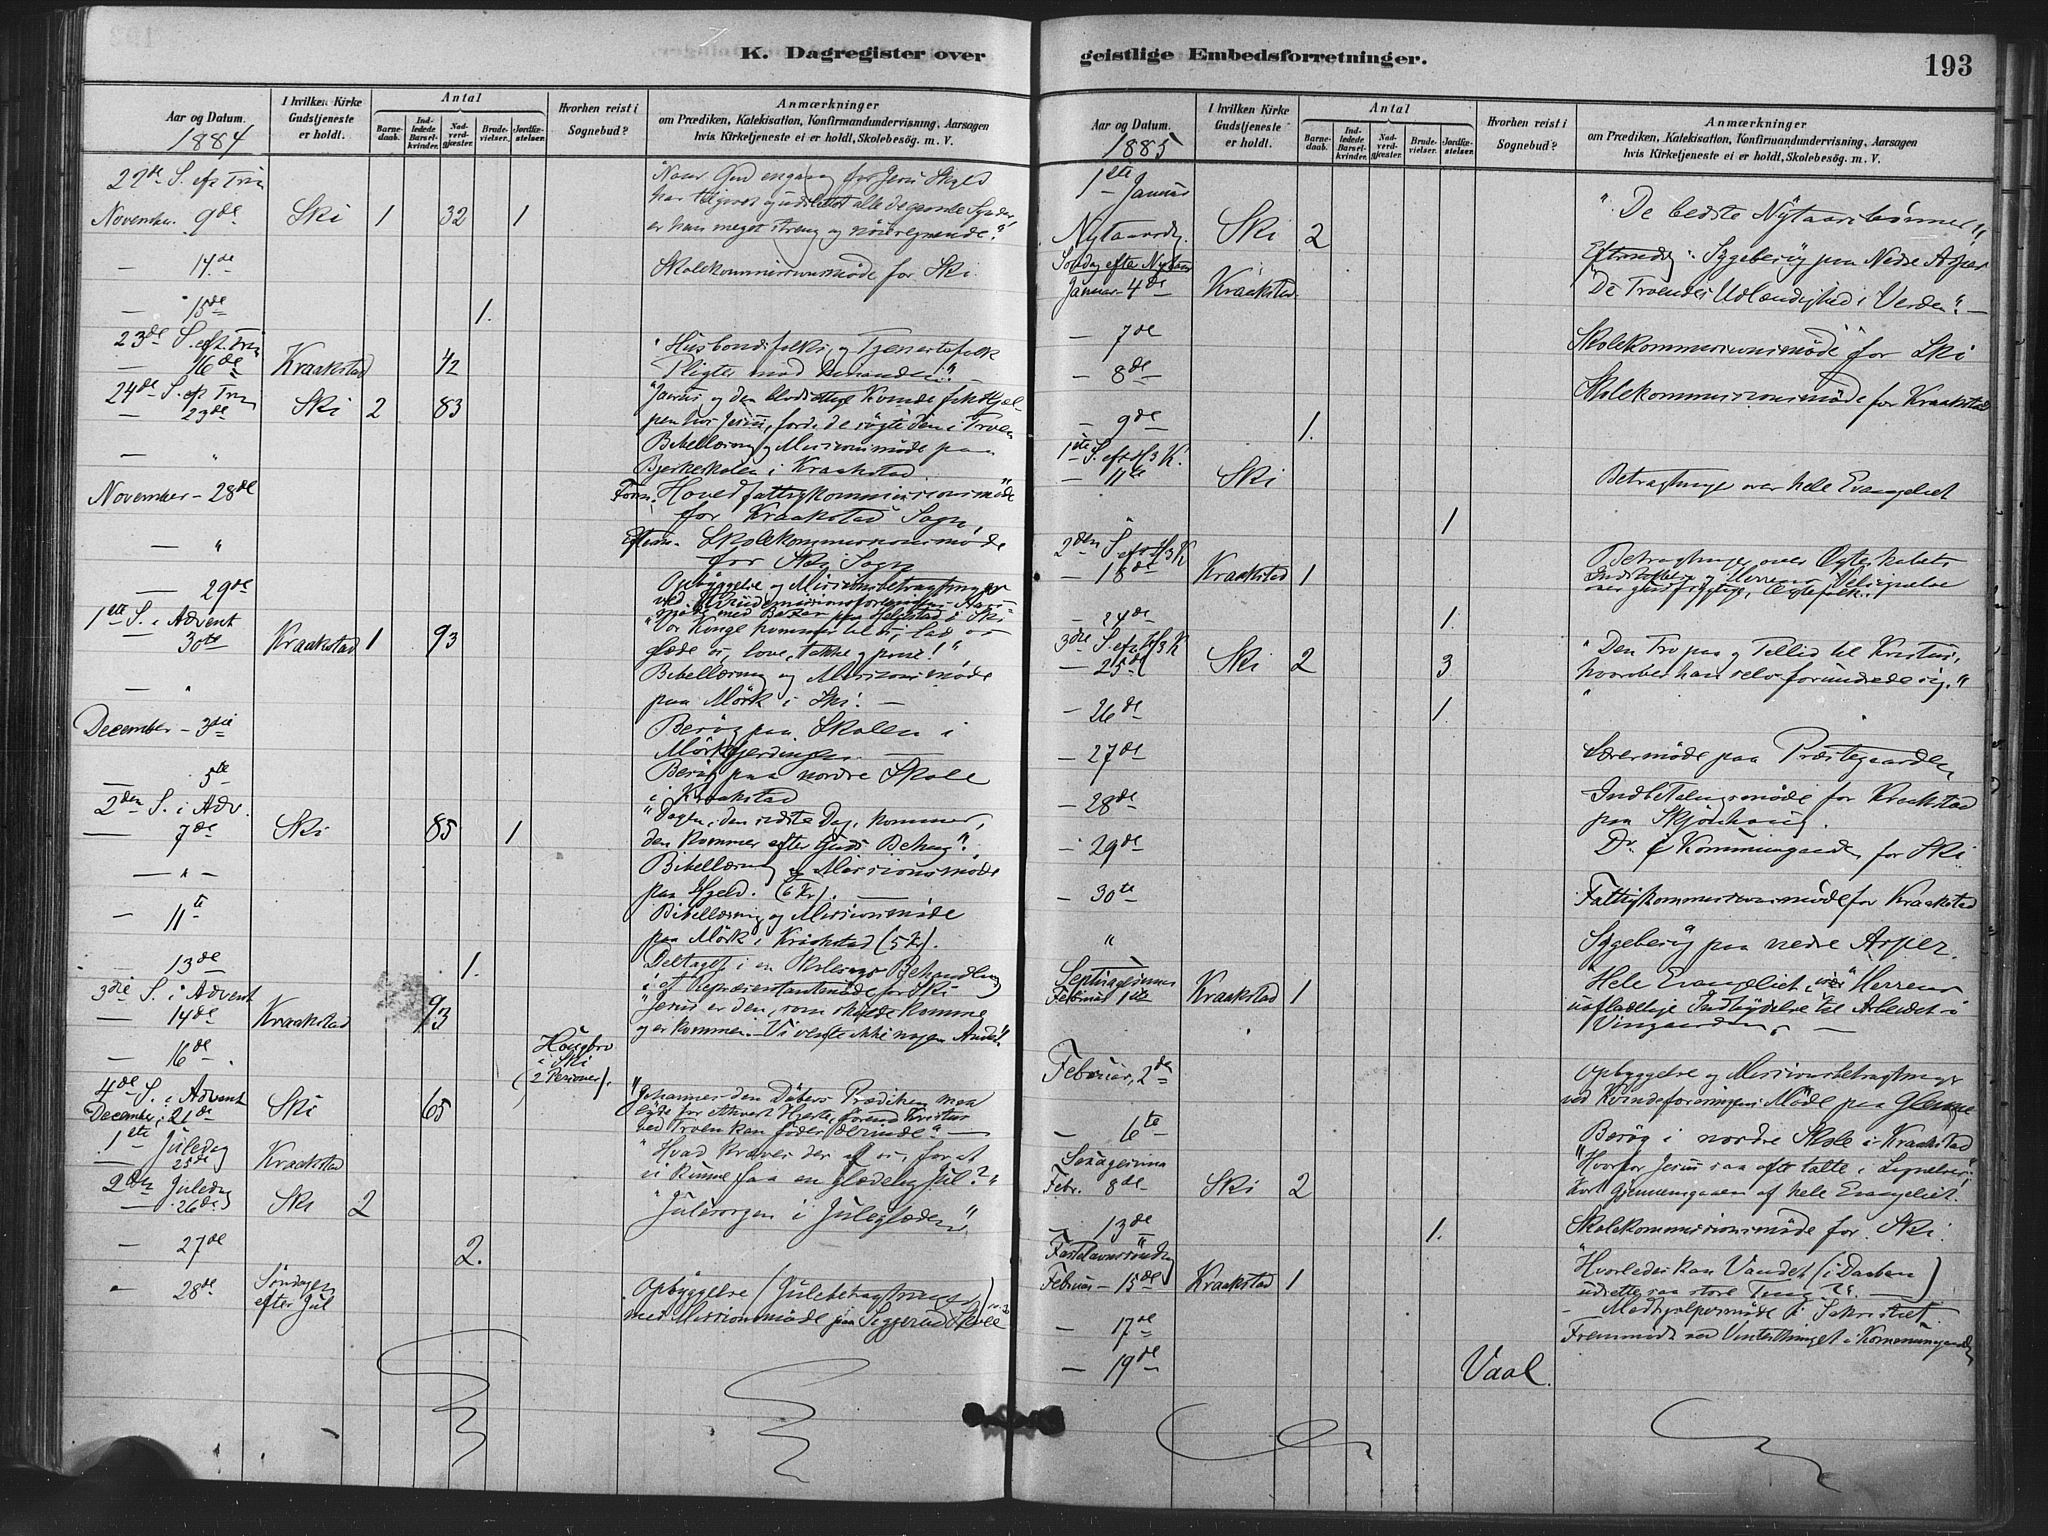 K. Dagregister over
geistlige Embedsforretninger.
193
Aar og Datum.
1884
I hvilken Kirke Gudstjeneste er holdt.
Antal
Barnedaab.
Indledede Barselkvinder.
Nadverdgjæster.
Brudevielser.
Jordfæstelser.
Hvorhen reist i Sognebud?
Anmærkninger
om Prædiken, Katekisation, Konfirmandundervisning, Aarsagen
hvis Kirketjeneste ei er holdt, Skolebesög. m. V.
22de S. eft Trin
November 9de Ski 1 32 1
"Naar Gud engang for Jesu Skyld
har tilgivet og udslettet alle de gjorde Synder,
er han meget streng og nöieregnende?"
— 14de Skolekommissionsmøde for Ski.
— 15de 1.
23de S. eft. Trin
— 16de Kraakstad 42
"Husbondsfolks og Tjenestefolk
Pligter mod hinanden." —
24de S. eft Trin
— 23de Ski 2 83
"Jairus og den blodsottige Kvinde fik Hjæl-
pen hos Jesus, fordi de søgte den i Troen
— " Bibellæsning og Missionsmøde paa
Bjerkeskolen i Kraakstad.
November — 28de Form. Hovedfattigkommissionsmøde
for Kraakstad Sogn,
— " Efterm. Skolekommissionsmøde
for Ski Sogn
— 29de Opbyggelse og Missionsbetragtninger
ved Kvindemissionsforeningens Aars-
møde med Bazar paa Holgestad i Ski
1ste S. i Advent
30te Kraakstad 1 93
"Vor Konge kommer til os, lad os
glæde os, love, takke og prise!"
— " Bibellæsning og Missionsmøde
paa Mörk i Ski. —
December — 3die Besøg paa Skolen i
Mörkfjerdingen —
— 5te Besøg paa nordre Skole
i Kraakstad
2den S. i Adv.
— 7de Ski 85 1
"Dagen, den sidste Dag, kommer,
den kommer efter Guds Behag".
— " — Bibellæsning og Missionsmøde
paa Hjeld. (6 Kr). —
— 11te Bibellæsning og Missionsmøde
paa Mörk i Kraakstad (5 Kr).
— 13de 1. Deltaget i en Skolesags Behandling
i et Repræsentantmøde for Ski
3die S. i Advent
— 14de Kraakstad 93
"Jesus er den, som skulde komme
og er kommen. Vi vente ikke nogen Anden".
— 16de Haugbro
i Ski
(2 Personer).
4de S. i Advent
December, 21de Ski 65
"Johannes den Døbers Prædiken maa
lyde for ethvert Hjerte, førend Kristus
ved Troen kan fødes derinde." —
1ste Juledag
— 25de Kraakstad
"Hvad kræves der af os, for at
vi kunne faa en glædelig Jul?"
2den Juledag
— 26de Ski 2
"Julesorgen i Juleglæden"
— 27de 2.
— 28de Søndagen
efter Jul
Opbyggelse (Julebetragtning)
med Missionsmøde paa Siggerud Skole
Aar og Datum.
1885
I hvilken Kirke Gudstjeneste er holdt.
Antal
Barnedaab.
Indledede Barselkvinder.
Nadverdgjæster.
Brudevielser.
Jordfæstelser.
Hvorhen reist i Sognebud?
Anmærkninger
om Prædiken, Katekisation, Konfirmandundervisning, Aarsagen
hvis Kirketjeneste ei er holdt, Skolebesög. m. V.
1ste Januar
Nytaarsdg. Ski 2
"De bedste Nytaarsbønner"
Eftermidg. Sygebesøg paa Nedre Asper
Søndag efter Nytaar
Januar 4de Kraakstad
"De Troendes Udlændighed i Verden". —
— 7de Skolekommissionsmøde for Ski
— 8de Skolekommissionsmøde for Kraakstad
— 9de 1.
1ste S. eft. H 3 K.
— 11te Ski Betragtninger over hele Evangeliet
" 1
2den S. eft. H 3 K
— 18de Kraakstad 1
Betragtninger over Ægteskabets
Indstiftelse og Herrens Velsignelse
over gudfrygtige Ægtefolk.
— 24de 1.
3die S. eft H 3 K
— 25de Ski 2 3
"Den Tro paa og Tillid til Kristus,
hvorover han selv forundrede sig."
— 26de 1.
— 27de Læremøde paa Præstegaarden
— 28de Indbetalingsmøde for Kraakstad
paa Skjønhaug.
— 29de Do i Kommunegaarden for Ski
— 30te Fattigkommissionsmøde for Kraakstad
" Sygebesøg paa nedre Asper.
Septuagesima
Februar 1ste Kraakstad 1
"Hele Evangeliet, over Herrens
uafladelige Indbydelse til Arbeidet i
Vingaarden. —
Februar, 2de Opbyggelse og Missionsbetragtninger
ved Kvindeforeningens Møde paa Glenne
— 6te Besøg i nordre Skole i Kraakstad
Sexagesima
Febr. 8de Ski 2
"Hvorfor Jesus saa ofte talte i Lignelser",
kort Gjennemgaaen af hele Evangeliet.
— 13de 1. Skolekommissionsmøde for Ski.
Fastelavnssøndag
Februar — 15de Kraakstad 1
"Hvorledes kan Vandet (i Daaben)
udrette saa store Ting?" —
— Medhjælpermøde i Sakristiet.
— 17de Fremmødt ved Vinterthinget i Kommunegaarden
— 19de Vaal.